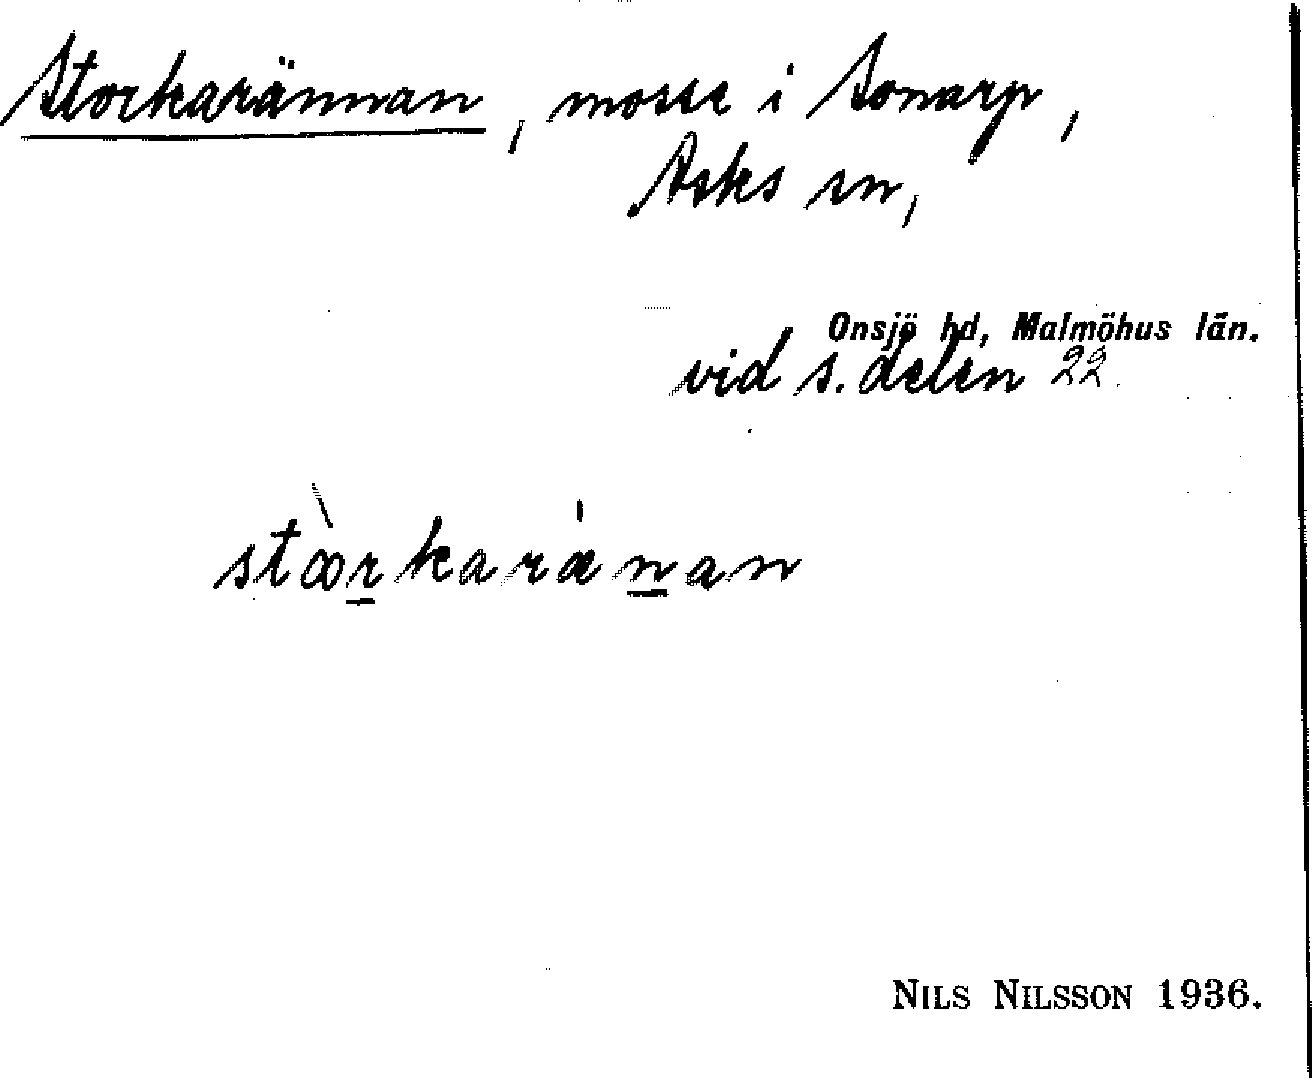 Storkarännan, mosse i Sonarp,
Asks sn,
Onsjö hd, Malmöhus län.
vid s. delen 22.
NILS NILSSON 1936.